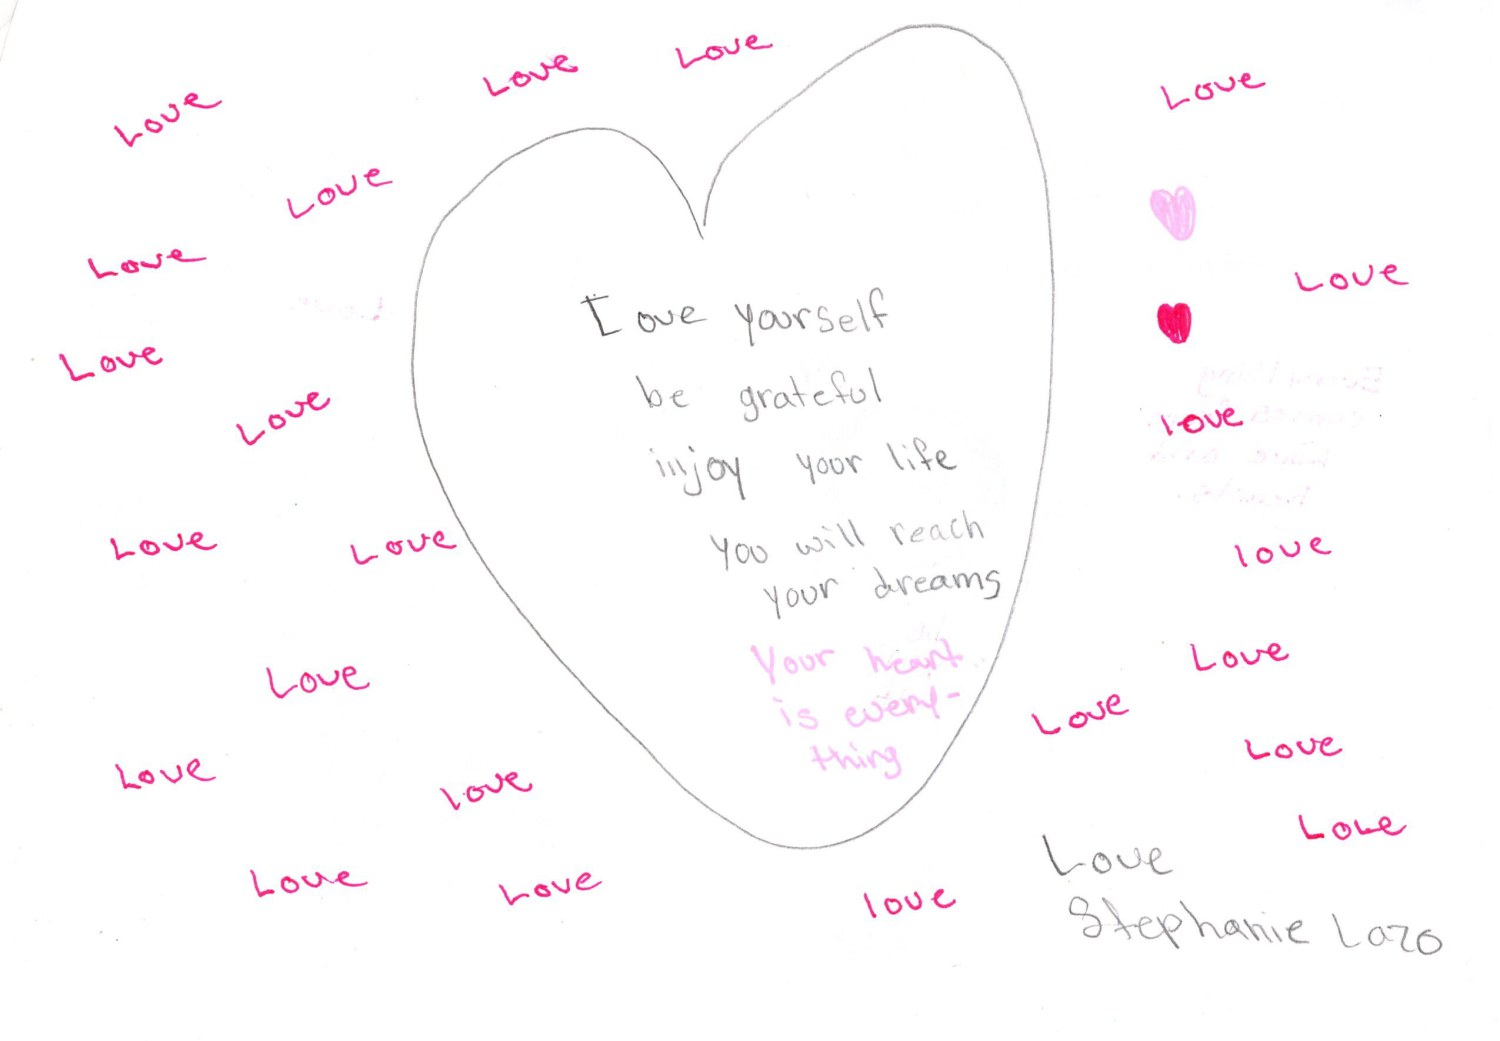 Love
Love
Love
Love
Love
Love
Love
Love
Love
Love
Love
Love
Love
love
Love
Love
Love yourself
be grateful
injoy your life
you will reach
your dreams
Your heart
is every-
thing
Love
Love
love
love
Love
Love
Love
Love
love
Love
Stephanie Lazo